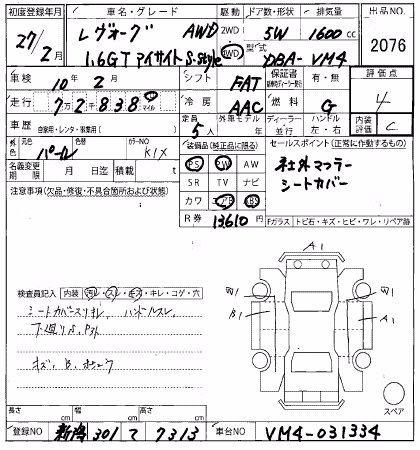 初度登録年月 車名・グレード 駆動 ドア数・形状 排気量 出品NO.
27/2月 レヴォーグ AWD 2WD 5W 1600cc 2076
1.6GT アイサイト S-style 4WD 型式 DBA-VM4
車検 10年2月 シフト FAT 保証書 有・無 評価点 4
走行 72838 マイル 冷房 AAC 燃料 G
車歴 自家用・レンタ・事業用( ) 定員 5人 外車モデル 年 ディーラー 並行 ハンドル 左・右 内装評価 C
外色 元色 パール カラーNO K1X 装備品(純正品に限る) セールスポイント(正常に作動するもの)
名義変更期限 月 日迄 積載 t PS PW AW 社外マフラー
SR TV ナビ シートカバー
注意事項(欠品・修復・不具合箇所および状態) カワ エアB ABS
R券 13,610 Fガラス トビ石・キズ・ヒビ・ワレ・リペア跡
A1
検査員記入 内装 汚レ・スレ・キズ・キレ・コゲ・穴
シートカバースリキレ、ハンドルスレ、
下廻りS,
キズ、B、
W1 B1 A1 W1
A1
スペア
長さ cm 幅 cm 高さ cm
登録NO 新潟 301 て 7313 車台NO VM4-031334